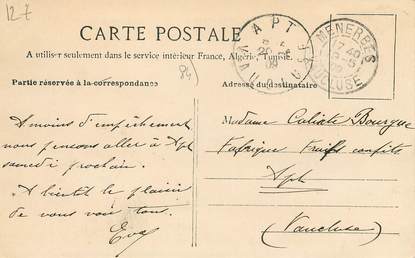 127
CARTE POSTALE
A utiliser seulement dans le service intérieur France, Algérie, Tunisie.
Partie réservée à la correspondance
Adresse du destinataire
(84)
APT
VAUCLUSE
MENERBES
17 40
VAUCLUSE
A moins d'empêchement
nous pensons aller à Apt
samedi prochain.
A bientôt le plaisir
de vous voir tous.
Eva
Madame Calixte Bourgue
Fabrique Fruits confits
Apt
(Vaucluse)